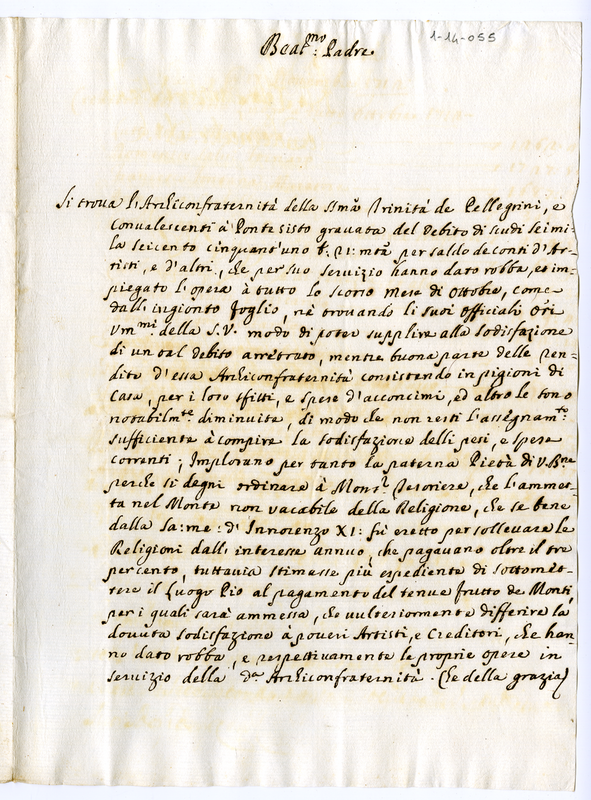 1-14-055
Beat.mo Padre.
Si troua l'Archiconfraternità della SSma Trinità de Pellegrini, e
Conualescenti à Ponte Sisto grauata del debito di scudi seimi-
la seicento cinquant'uno
per saldo de conti d'Ar-
tisti, e d'altri, che per suo seruizio hanno dato robba, et im-
piegato l'opera à tutto lo scorso Mese di Ottobre, come
dall'ingionto foglio, nè trouando li suoi Officiali Ori
Vm.mi della S.V. modo di poter supplire alla sodisfazione
di un tal debito arretrato, mentre buona parte delle ren-
dite d'essa Archiconfraternità consistendo in pigioni di
Case, per i loro sfitti, e spese d'acconcimi, ed altro le sono
notabilm.te diminuite, di modo che non resti l'assegnam.to
sufficiente à compire la sodisfazione delli pesi, e spese
correnti; Implorano per tanto la paterna Pietà di V. Bne
perche si degni ordinare à Mons.r Tesoriere, che l'ammet-
ta nel Monte non vacabile della Religione, che se bene
dalla Sa: me: d'Innocenzo XI: fù eretto per solleuare le
Religioni dall'interesse annuo, che pagauano oltre il tre
per cento, tuttauia stimasse più espediente di sottomet-
tere il Luogo Pio al pagamento del tenue frutto de Monti,
per i quali sarà ammessa, che vulteriormente differire la
douuta sodisfazione à poueri Artisti, e Creditori, che han-
no dato robba, e respettiuamente le proprie opere in
seruizio della d.a Archiconfraternità. Che della grazia